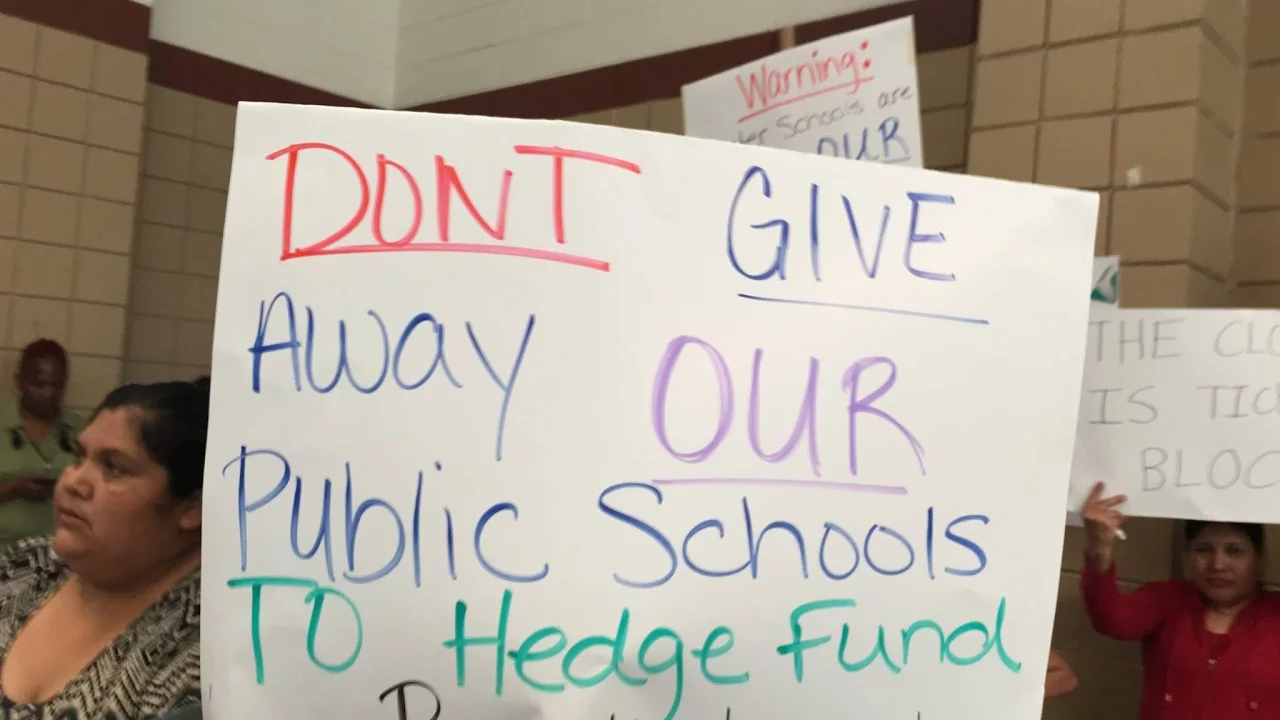 Warning:
Schools are
OUR
DONT GIVE
AWAY OUR
Public Schools
TO Hedge Fund
THE
IS